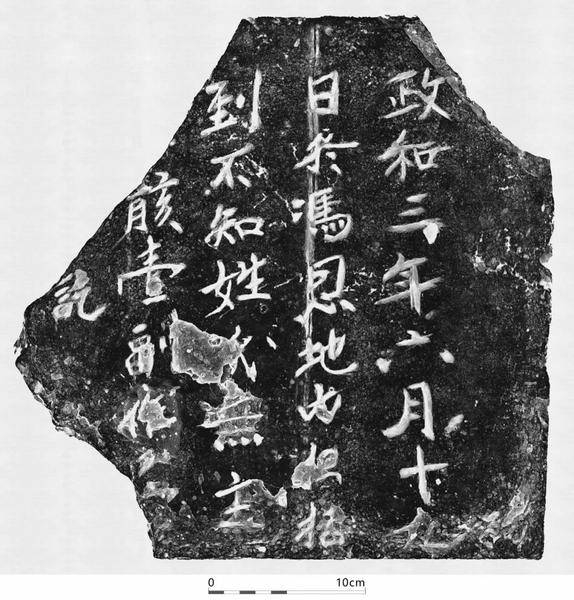 政和三年六月十九
日於馮恩地内根括
到不知姓無主
骸壹副
訖
0 10cm